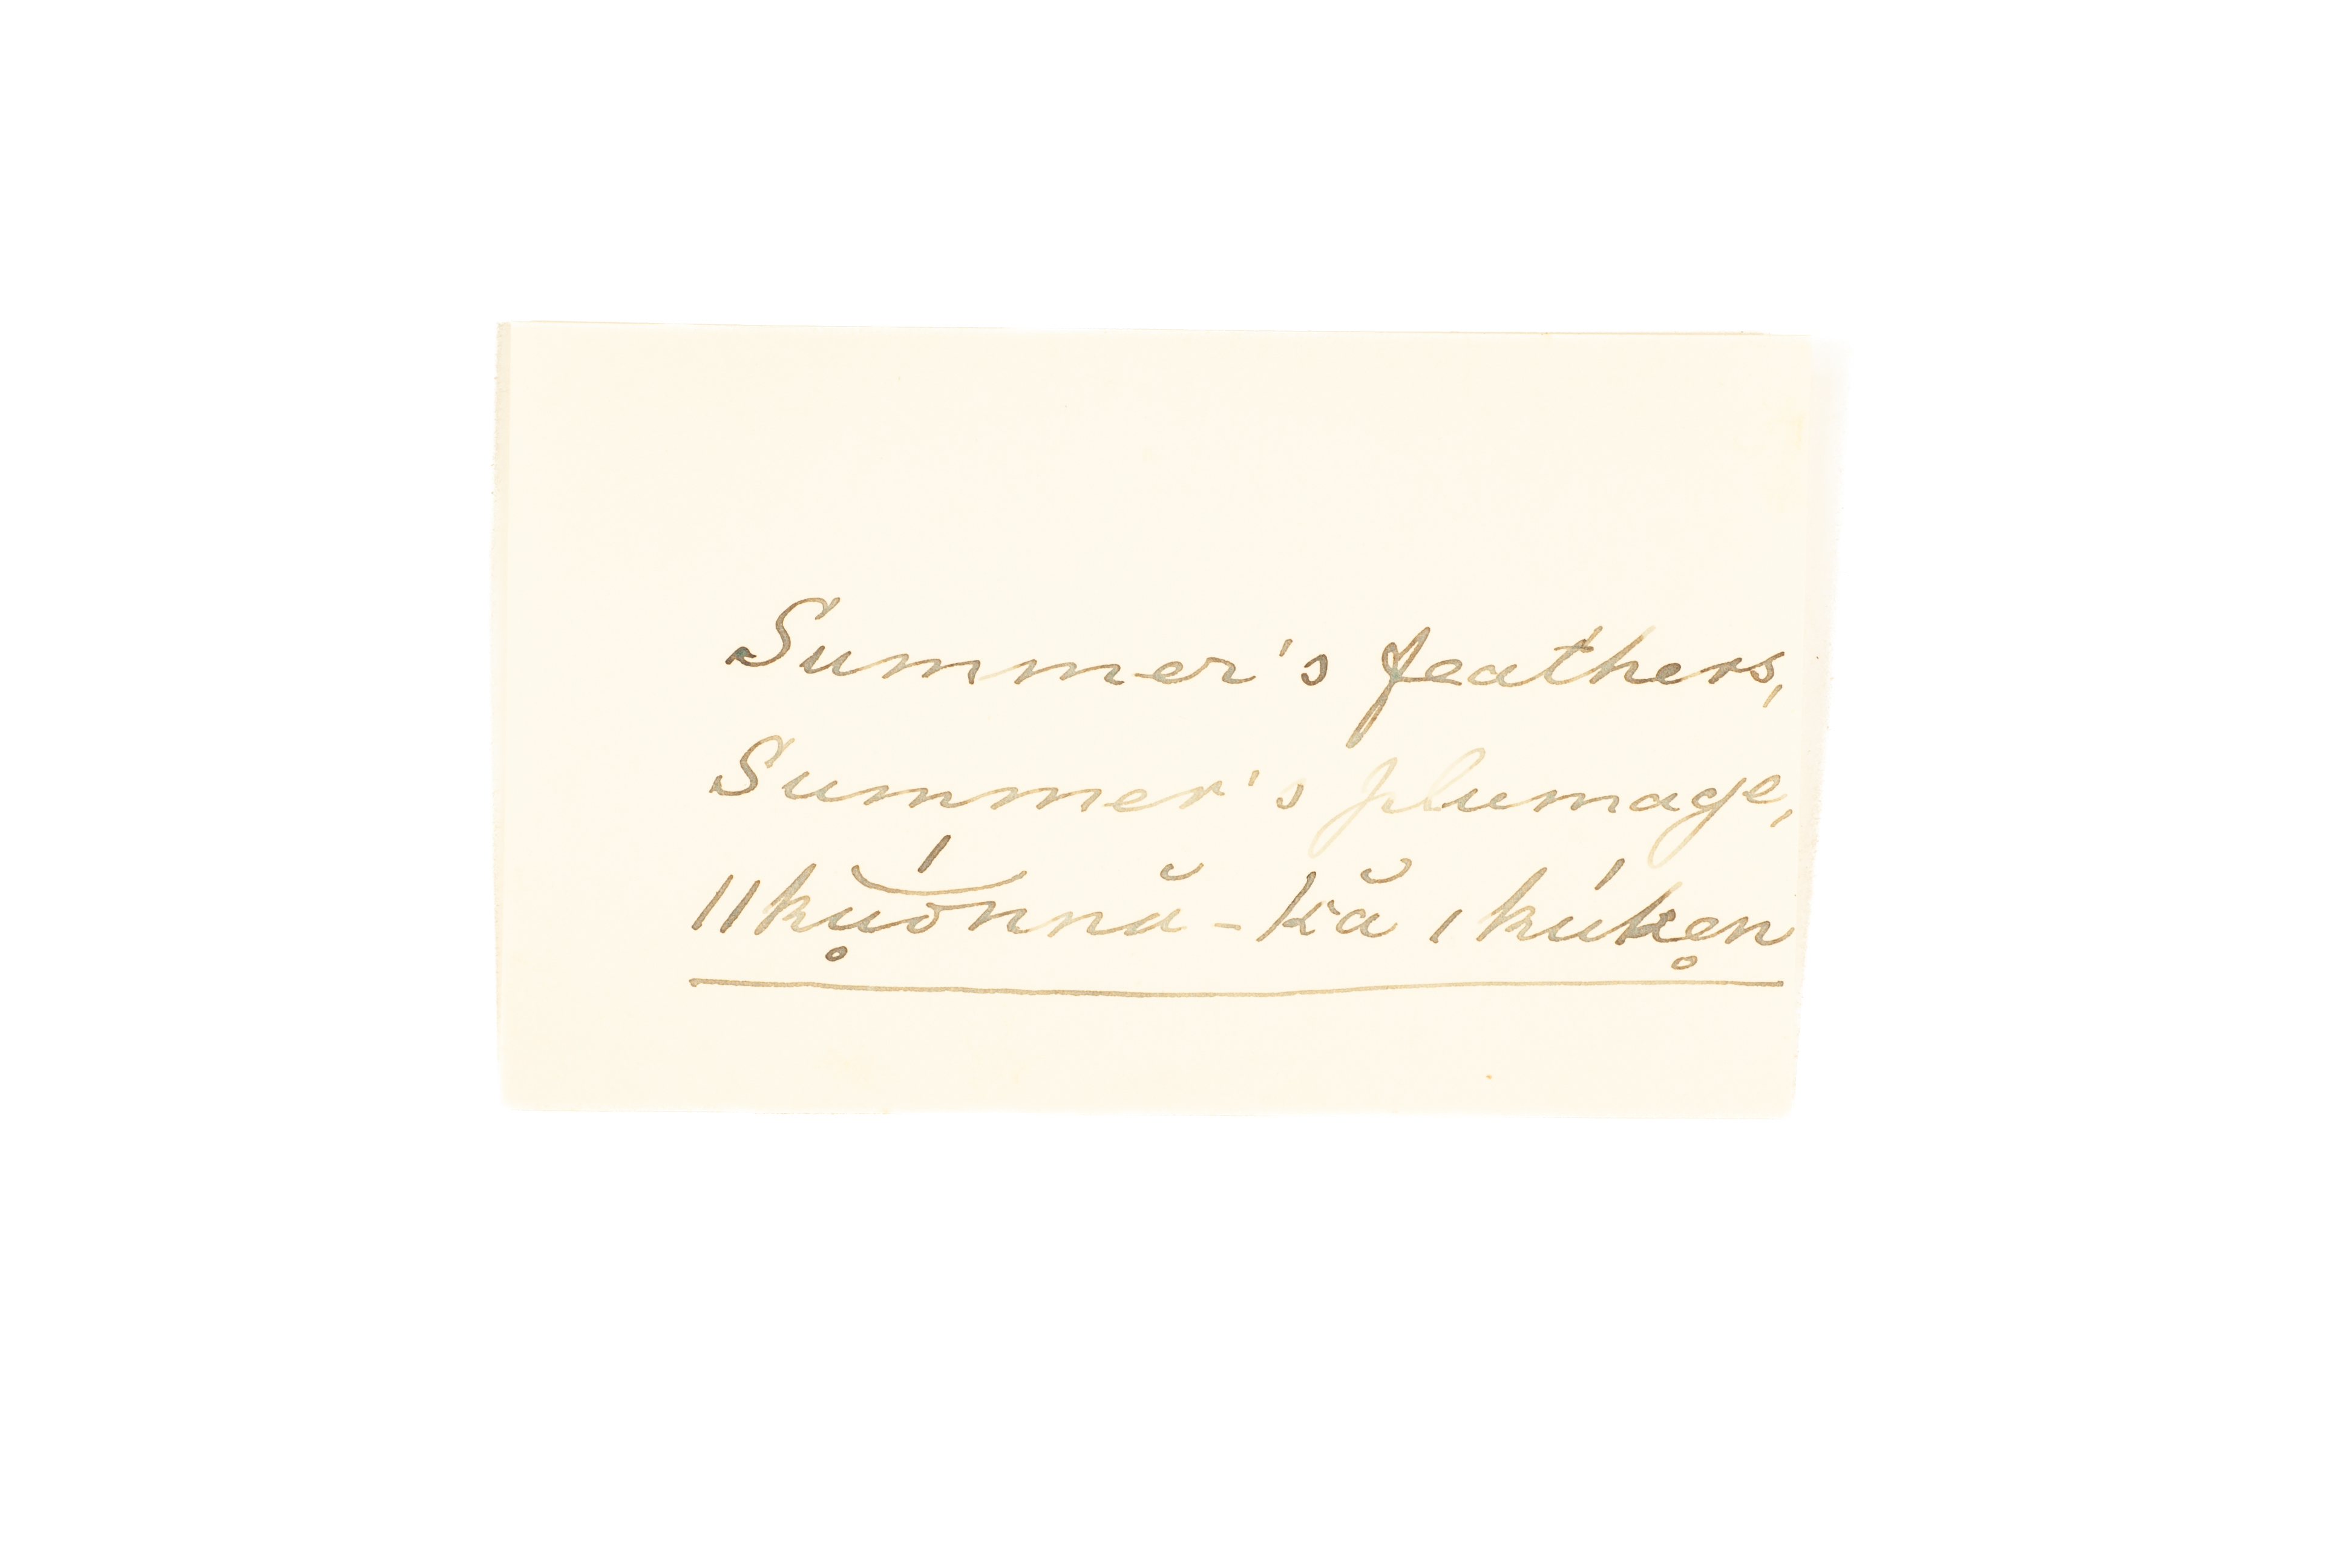 Summer's feathers,
Summer's plumage,
ǁku̥͡ónnă-kă ǀkúke̥n